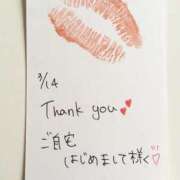 3/14
Thank you
ご自宅
はじめまして様